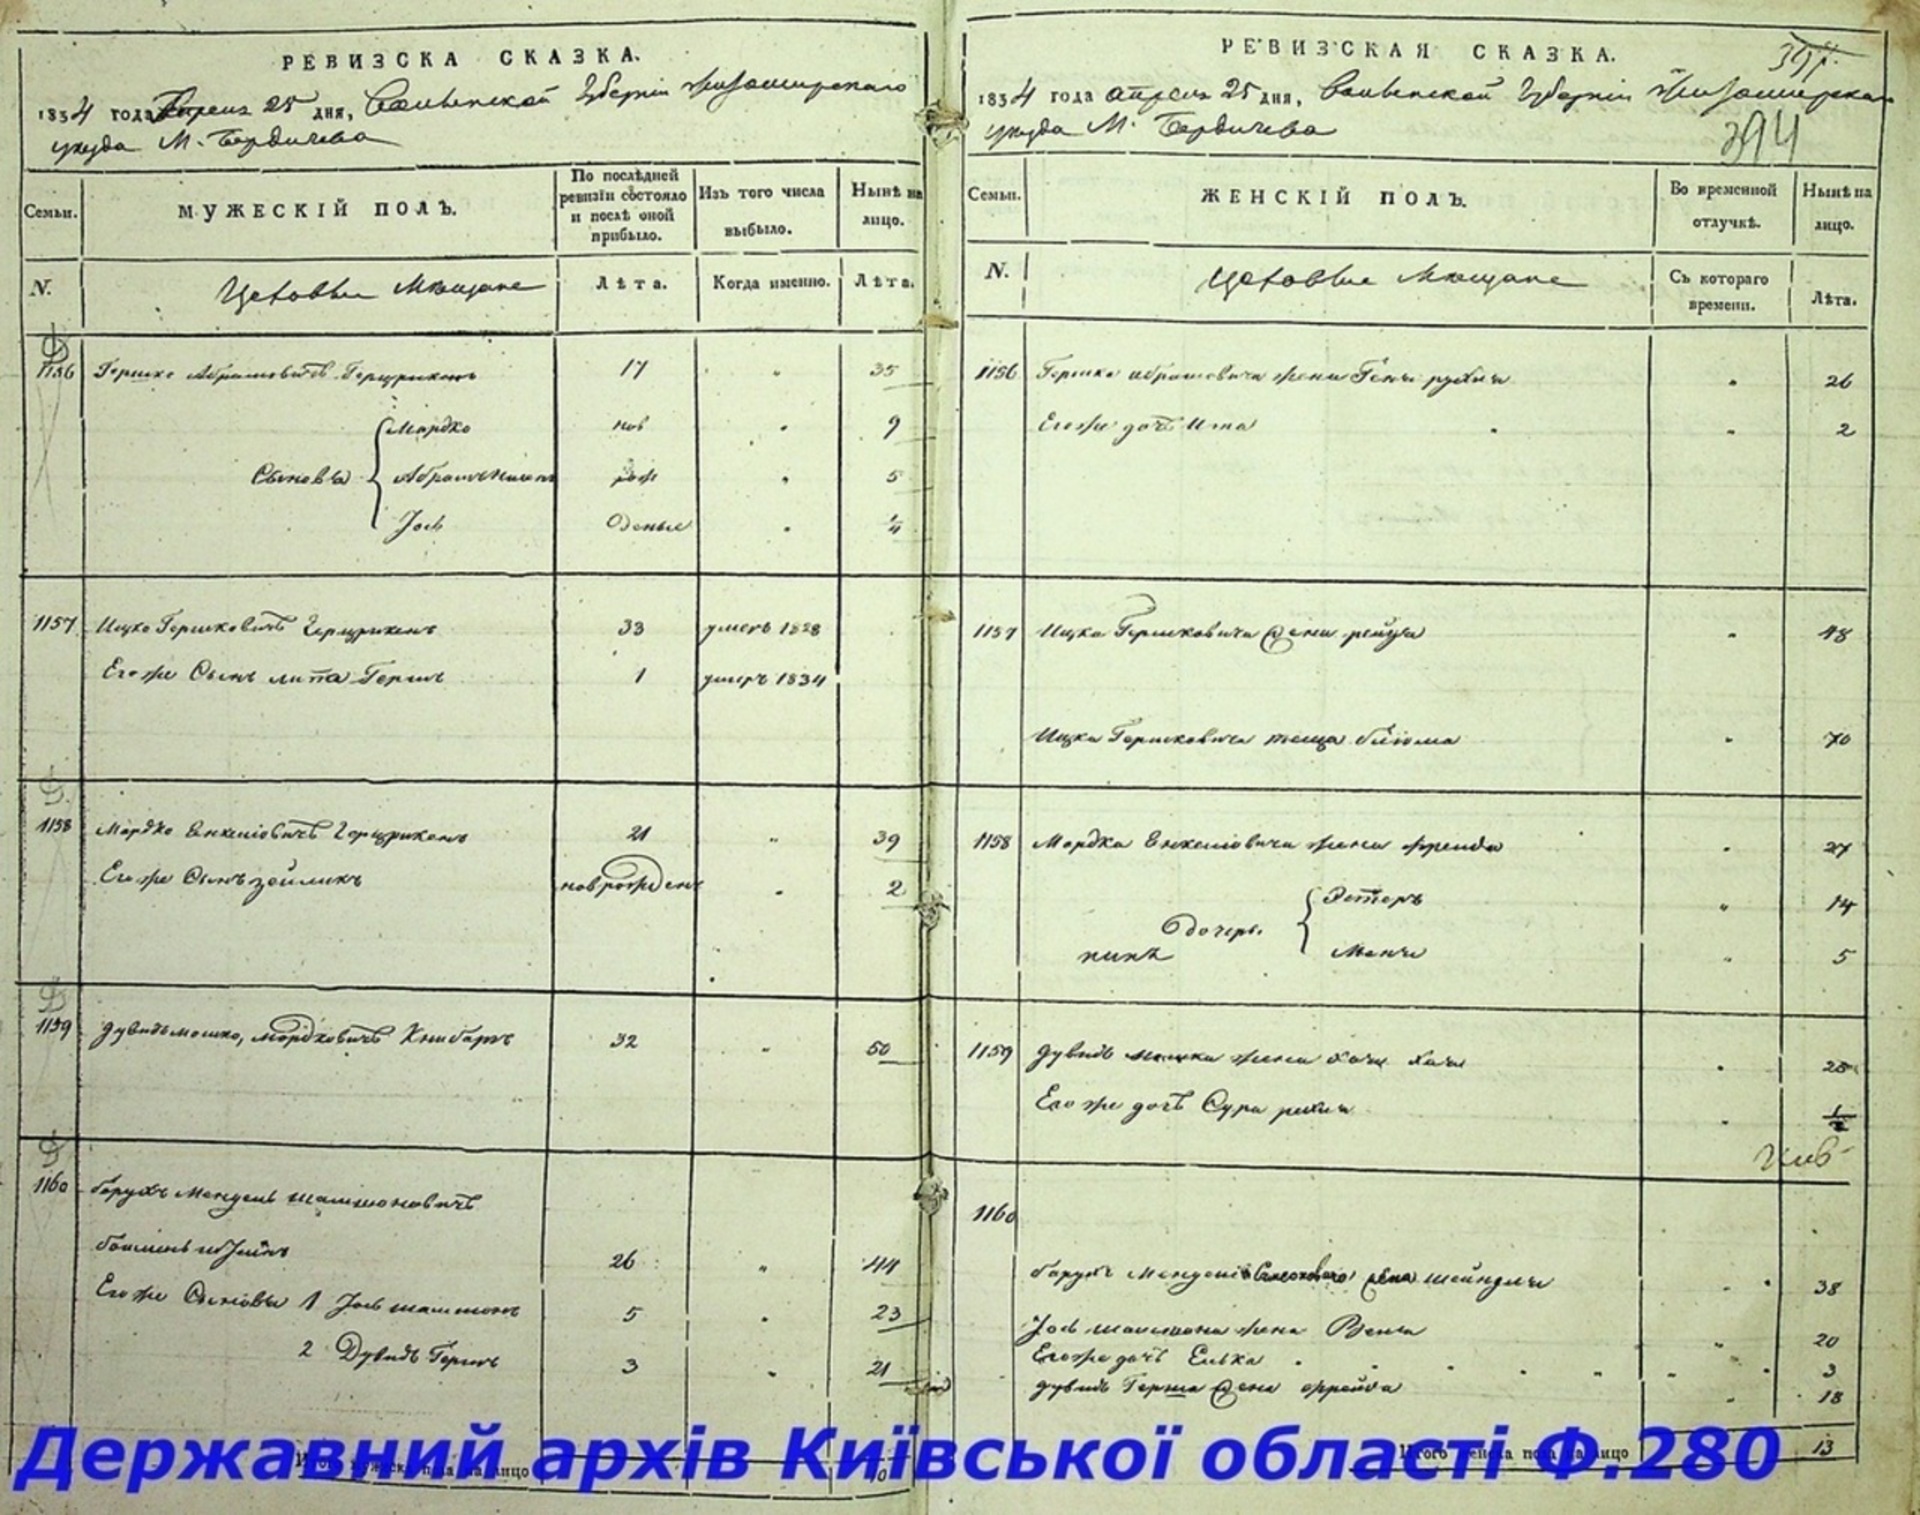 РЕВИЗСКА СКАЗКА.
1834 года Апреля 25 дня, Волынской Губернiи Житомирскаго
уезда М. Бердичева
Семьи.
МУЖЕСКІЙ ПОЛЪ.
По послѣдней ревизіи состояло и послѣ оной прибыло.
Изъ того числа выбыло.
Нынѣ на лицо.
N.
Цеховые Мещане
Лѣта.
Когда именно.
Лѣта.
1156 Гершко Абрамовичъ 17 " 35
Мордко нов " 9
Сыновья Абрамъ рож " 5
Іось деные " 1/4
1157 Ицко Гершковичъ 33 умеръ 1828
Его же Сынъ Липа Гершъ 1 умеръ 1834
1158 Мордко Енкелiовичъ 21 " 39
Его же Сынъ Зейликъ новорожденъ " 2
1159 Дувидъ Мошко, Мордковичъ 32 " 50
1160 Борухъ Мендель Шамшоновичъ
26 " 44
Его же Сыновья 1 Іось Шамшонъ 5 " 23
2 Дувидъ Гершъ 3 " 21
Итого мужеска пола на лицо 10
РЕВИЗСКАЯ СКАЗКА.
394
1834 года апреля 25 дня, Волынской Губернiи Житомирскаго
уезда М. Бердичева
Семьи.
ЖЕНСКІЙ ПОЛЪ.
Во временной отлучкѣ.
Нынѣ на лицо.
N.
Цеховые Мещане
Съ котораго времени.
Лѣта.
1156 Гершка Абрамовича жена Геня Рухля " 26
Его же дочь Ита " 2
1157 Ицка Гершковича жена Рейзя " 48
Ицка Гершковича теща Блюма " 70
1158 Мордка Енкелiовича жена Фрейда " 27
Эстеръ " 14
дочери
Мени " 5
1159 Дувидъ Мошка жена 25
Его же дочь Сура Рухля "
1160
Борухъ Менделя жена Шейндля " 38
Іось Шамшона жена " 20
Его же дочь Елька " 3
Дувидъ Герша жена Фрейда " 18
Итого женска пола на лицо 13
Державний архів Київської області Ф.280